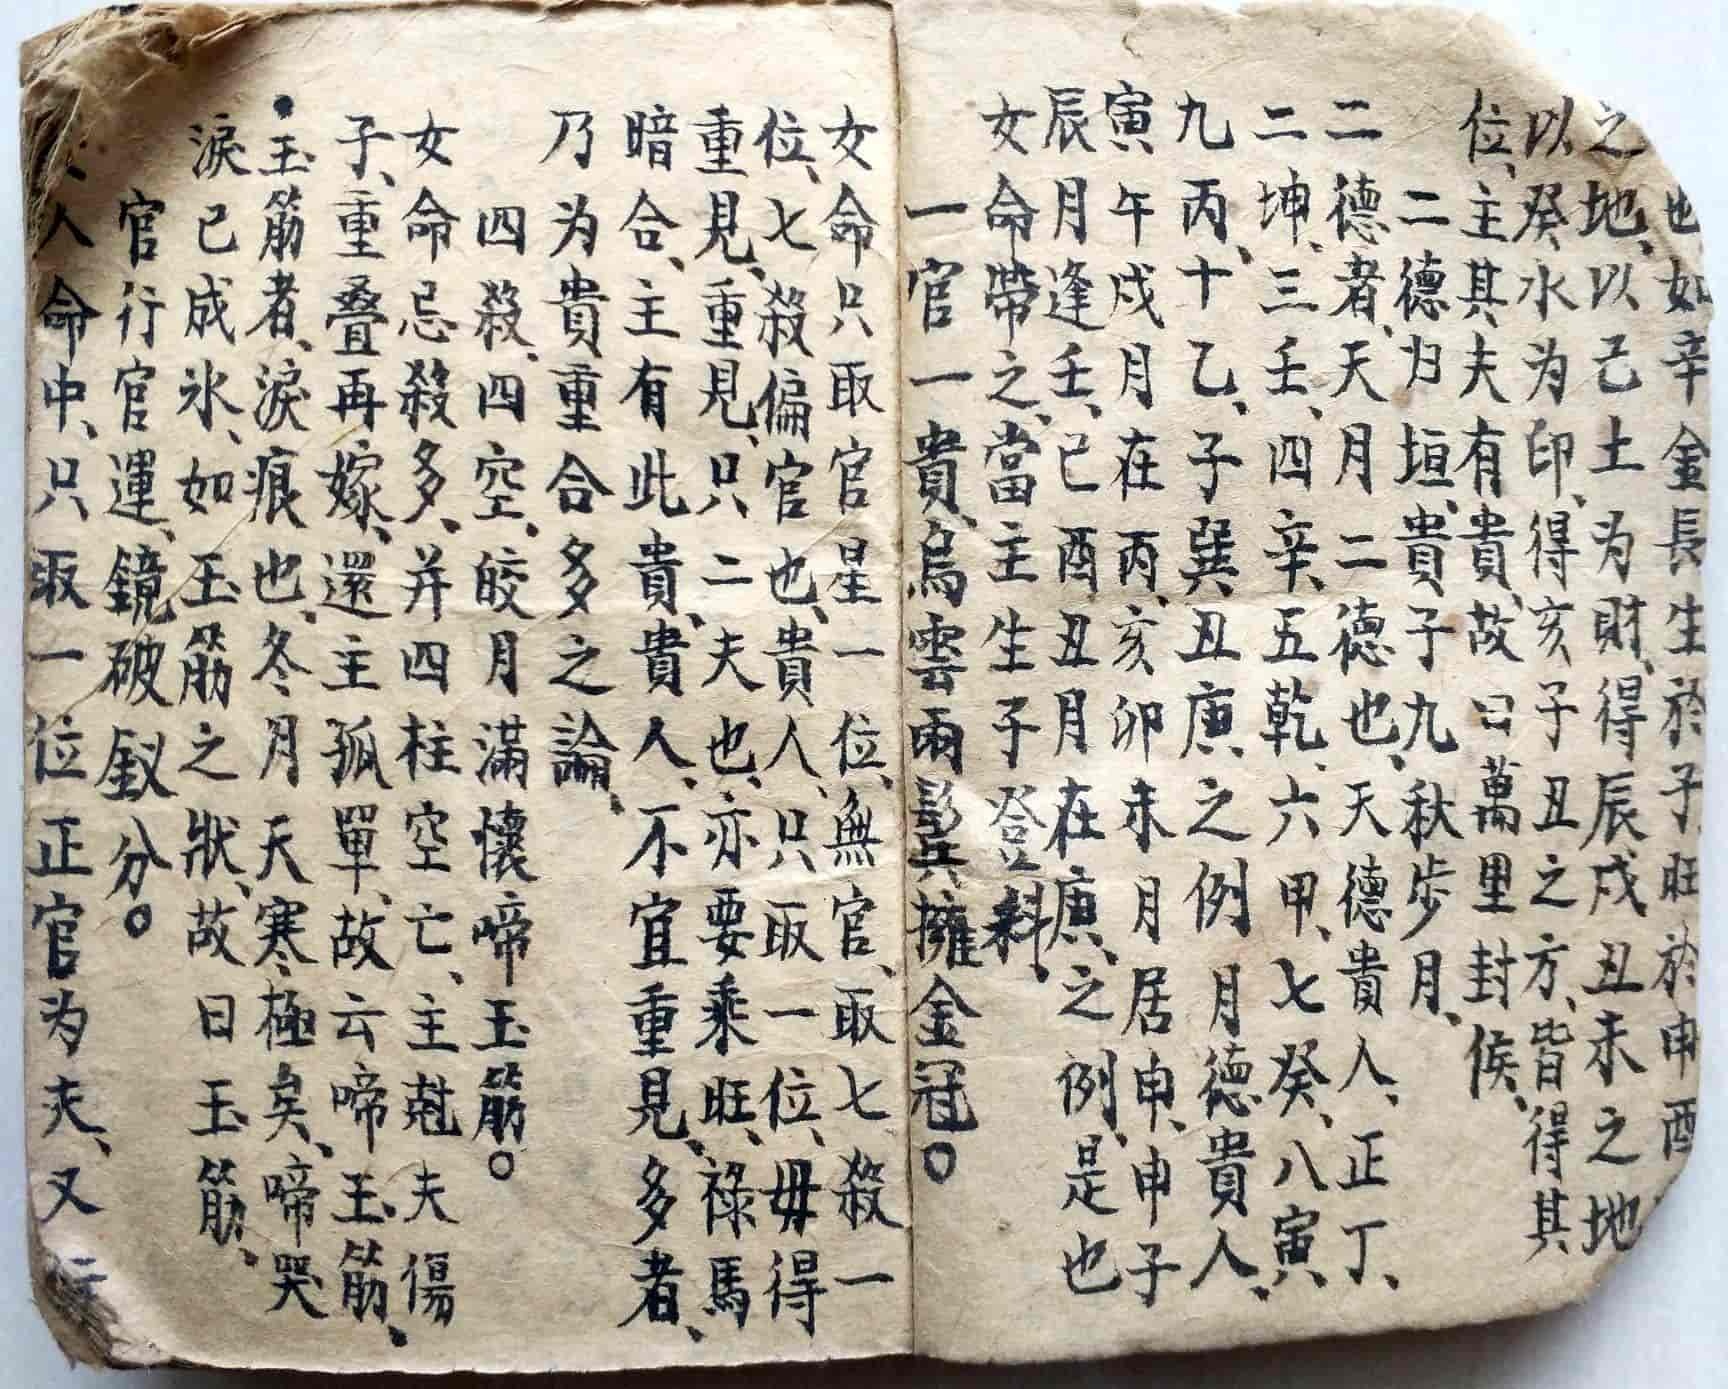 也、如辛金長生於子、旺於申酉
之地、以己土为財、得辰戍丑未之地
以癸水为印、得亥子丑之方、皆得其
位、主其夫有貴、故曰萬里封侯、
二德归垣、貴子九秋步月、
二德者、天月二德也、天德貴人、正丁、
二坤、三壬、四辛、五乾、六甲、七癸、八寅、
九丙、十乙、子巽丑庚、之例月德貴人、
寅午戍月在丙、亥卯未月居申、申子
辰月逢壬、巳酉丑月在庚、之例、是也
女命帶之、當主生子登科、
一官一貴、烏雲兩鬂擁金冠。
女命只取官星一位、無官、取七殺一
位、七殺偏官也、貴人、只取一位、毋得
重見、重見、只二夫也、亦要乘旺、祿馬
暗合、主有此貴、貴人、不宜重見、多者、
乃为貴重合多之論、
四殺、四空、皎月滿懷啼玉筋。
女命忌殺多、并四柱空亡、主尅夫傷
子、重叠再嫁、還主孤單、故云啼玉筋、
玉筋者、淚痕也、冬月天寒極矣、啼哭
淚已成氷、如玉筋之狀、故曰玉筋、
官行官運、鏡破釵分。
人命中、只取一位正官为夫、又